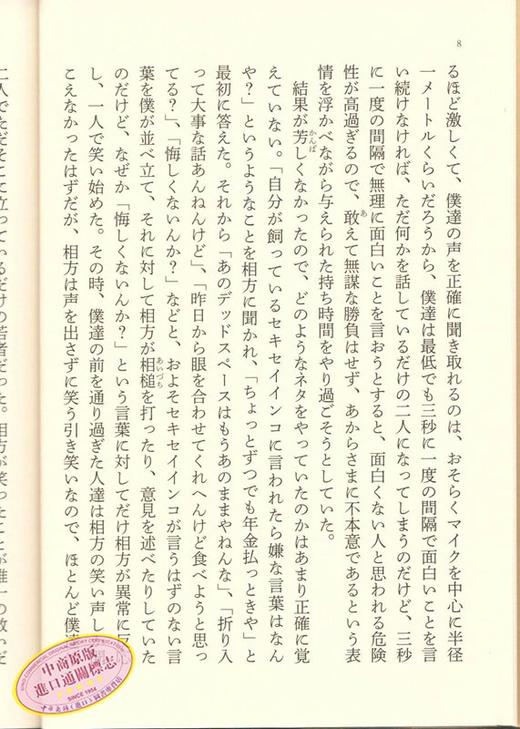 8
るほど激しくて、僕達の声を正確に聞き取れるのは、おそらくマイクを中心に半径
一メートルくらいだろうから、僕達は最低でも三秒に一度の間隔で面白いことを言
い続けなければ、ただ何かを話しているだけの二人になってしまうのだけど、三秒
に一度の間隔で無理に面白いことを言おうとすると、面白くない人と思われる危険
性が高過ぎるので、敢えて無謀な勝負はせず、あからさまに不本意であるという表
情を浮かべながら与えられた持ち時間をやり過ごそうとしていた。
結果が芳しくなかったので、どのようなネタをやっていたのかはあまり正確に覚
えていない。「自分が飼っているセキセイインコに言われたら嫌な言葉はなん
や?」というようなことを相方に聞かれ、「ちょっとずつでも年金払っときや」と
最初に答えた。それから「あのデッドスペースはもうあのままやねんな」、「折り入
って大事な話あんねんけど」、「昨日から眼を合わせてくれへんけど食べようと思っ
てる?」、「悔しくないんか?」などと、およそセキセイインコが言うはずのない言
葉を僕が並べ立て、それに対して相方が相槌を打ったり、意見を述べたりしていた
のだけど、なぜか「悔しくないんか?」という言葉に対してだけ相方が異常に
し、一人で笑い始めた。その時、僕達の前を通り過ぎた人達は相方の笑い声し
こえなかったはずだが、相方は声を出さずに笑う引き笑いなので、ほとんど僕
二人でただそこに立っているだけの若者だった。相方が笑ったことが唯一の救いだ
中商原版
進口通關標志
SINCE 1954